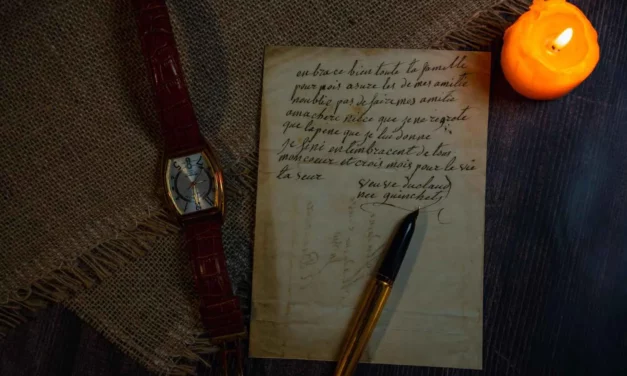 enbrace bien toute ta famille
pour mois asure les de mes amitie
noublie pas de faire mes amitie
a ma chere niece que je ne regrete
que la pene que je lui donne
je fini en tembracent de tous
mon coeur et crois mois pour le vie
ta seur
veuve
nee quinchet